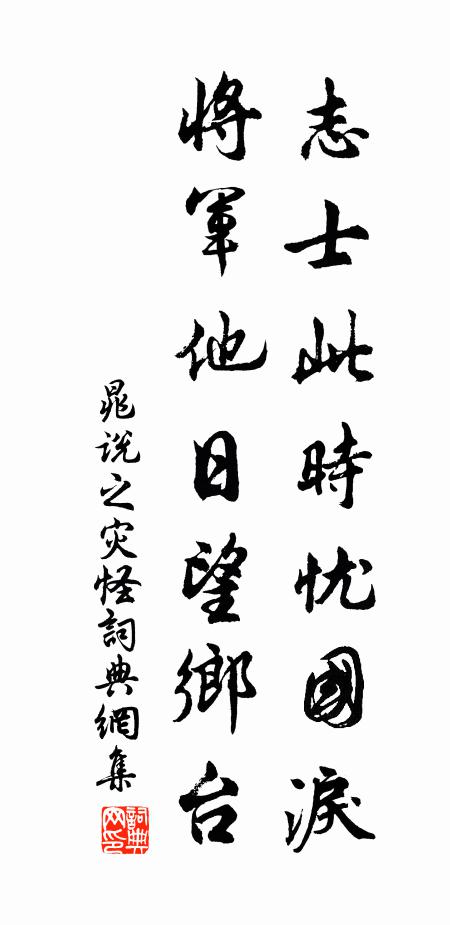 志士此時忧國淚
將軍他日望鄉台
晁説之灾怪詞典網集
詞典网印